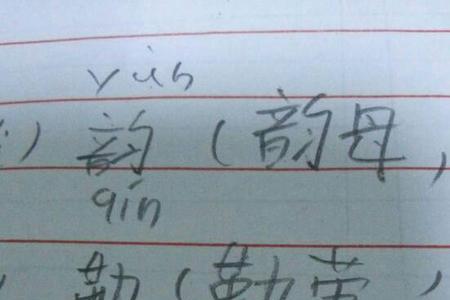 yùn
) 韵 (韵母,
qín
勤 (勤劳,